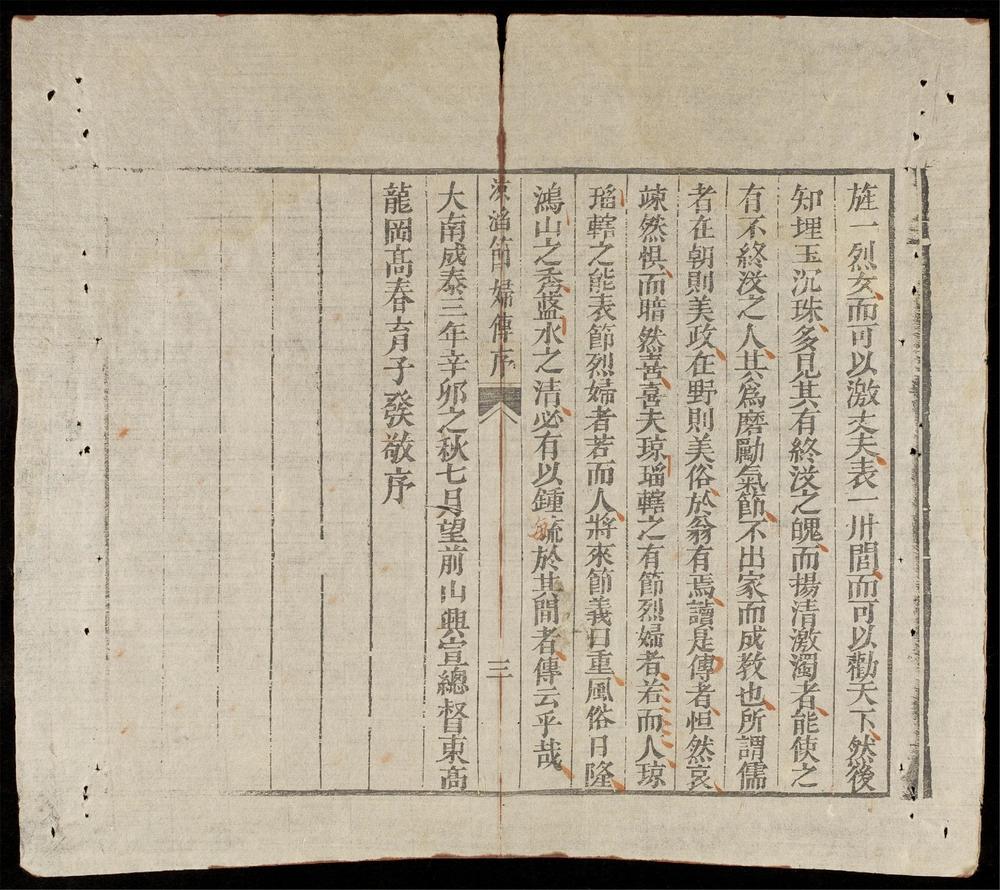 旌一烈女而可以激丈夫表一卅閭而可以勸天下然後
知埋玉沉珠多見其有終没之魄而揚清激濁者能使之
有不終没之人其爲磨勵氣節不出家而成教也所謂儒
者在朝則美政在野則美俗於翁有焉讀是傳者怛然哀
竦然惧而暗然喜喜夫琼瑫轄之有節烈婦者若而人琼
瑫轄之能表節烈婦者若而人將來節義日重風俗日隆
鴻山之秀藍水之清必有以鍾毓於其間者傳云乎哉
節婦傳序
三
大南成泰三年辛卯之秋七月望前山興宣總督東高
龍岡髙春育子發敬序